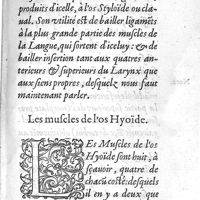 produits d'icelle, à l'os Styloïde ou cla-
ual. Son vtilité est de bailler ligamẽts
à la plus grande partie des muscles de
la Langue, qui sortent d'iceluy: & de
bailler insertion tant aux quatres an-
terieurs & superieurs du Larynx que
aux siens propres, desquelz nous faut
maintenant parler.
Les muscles de l'os Hyoïde.
LEs Muscles de l'os
Hyoïde sont huit, à
sçauoir, quatre de
chacũ costé: desquels
il en y a deux que